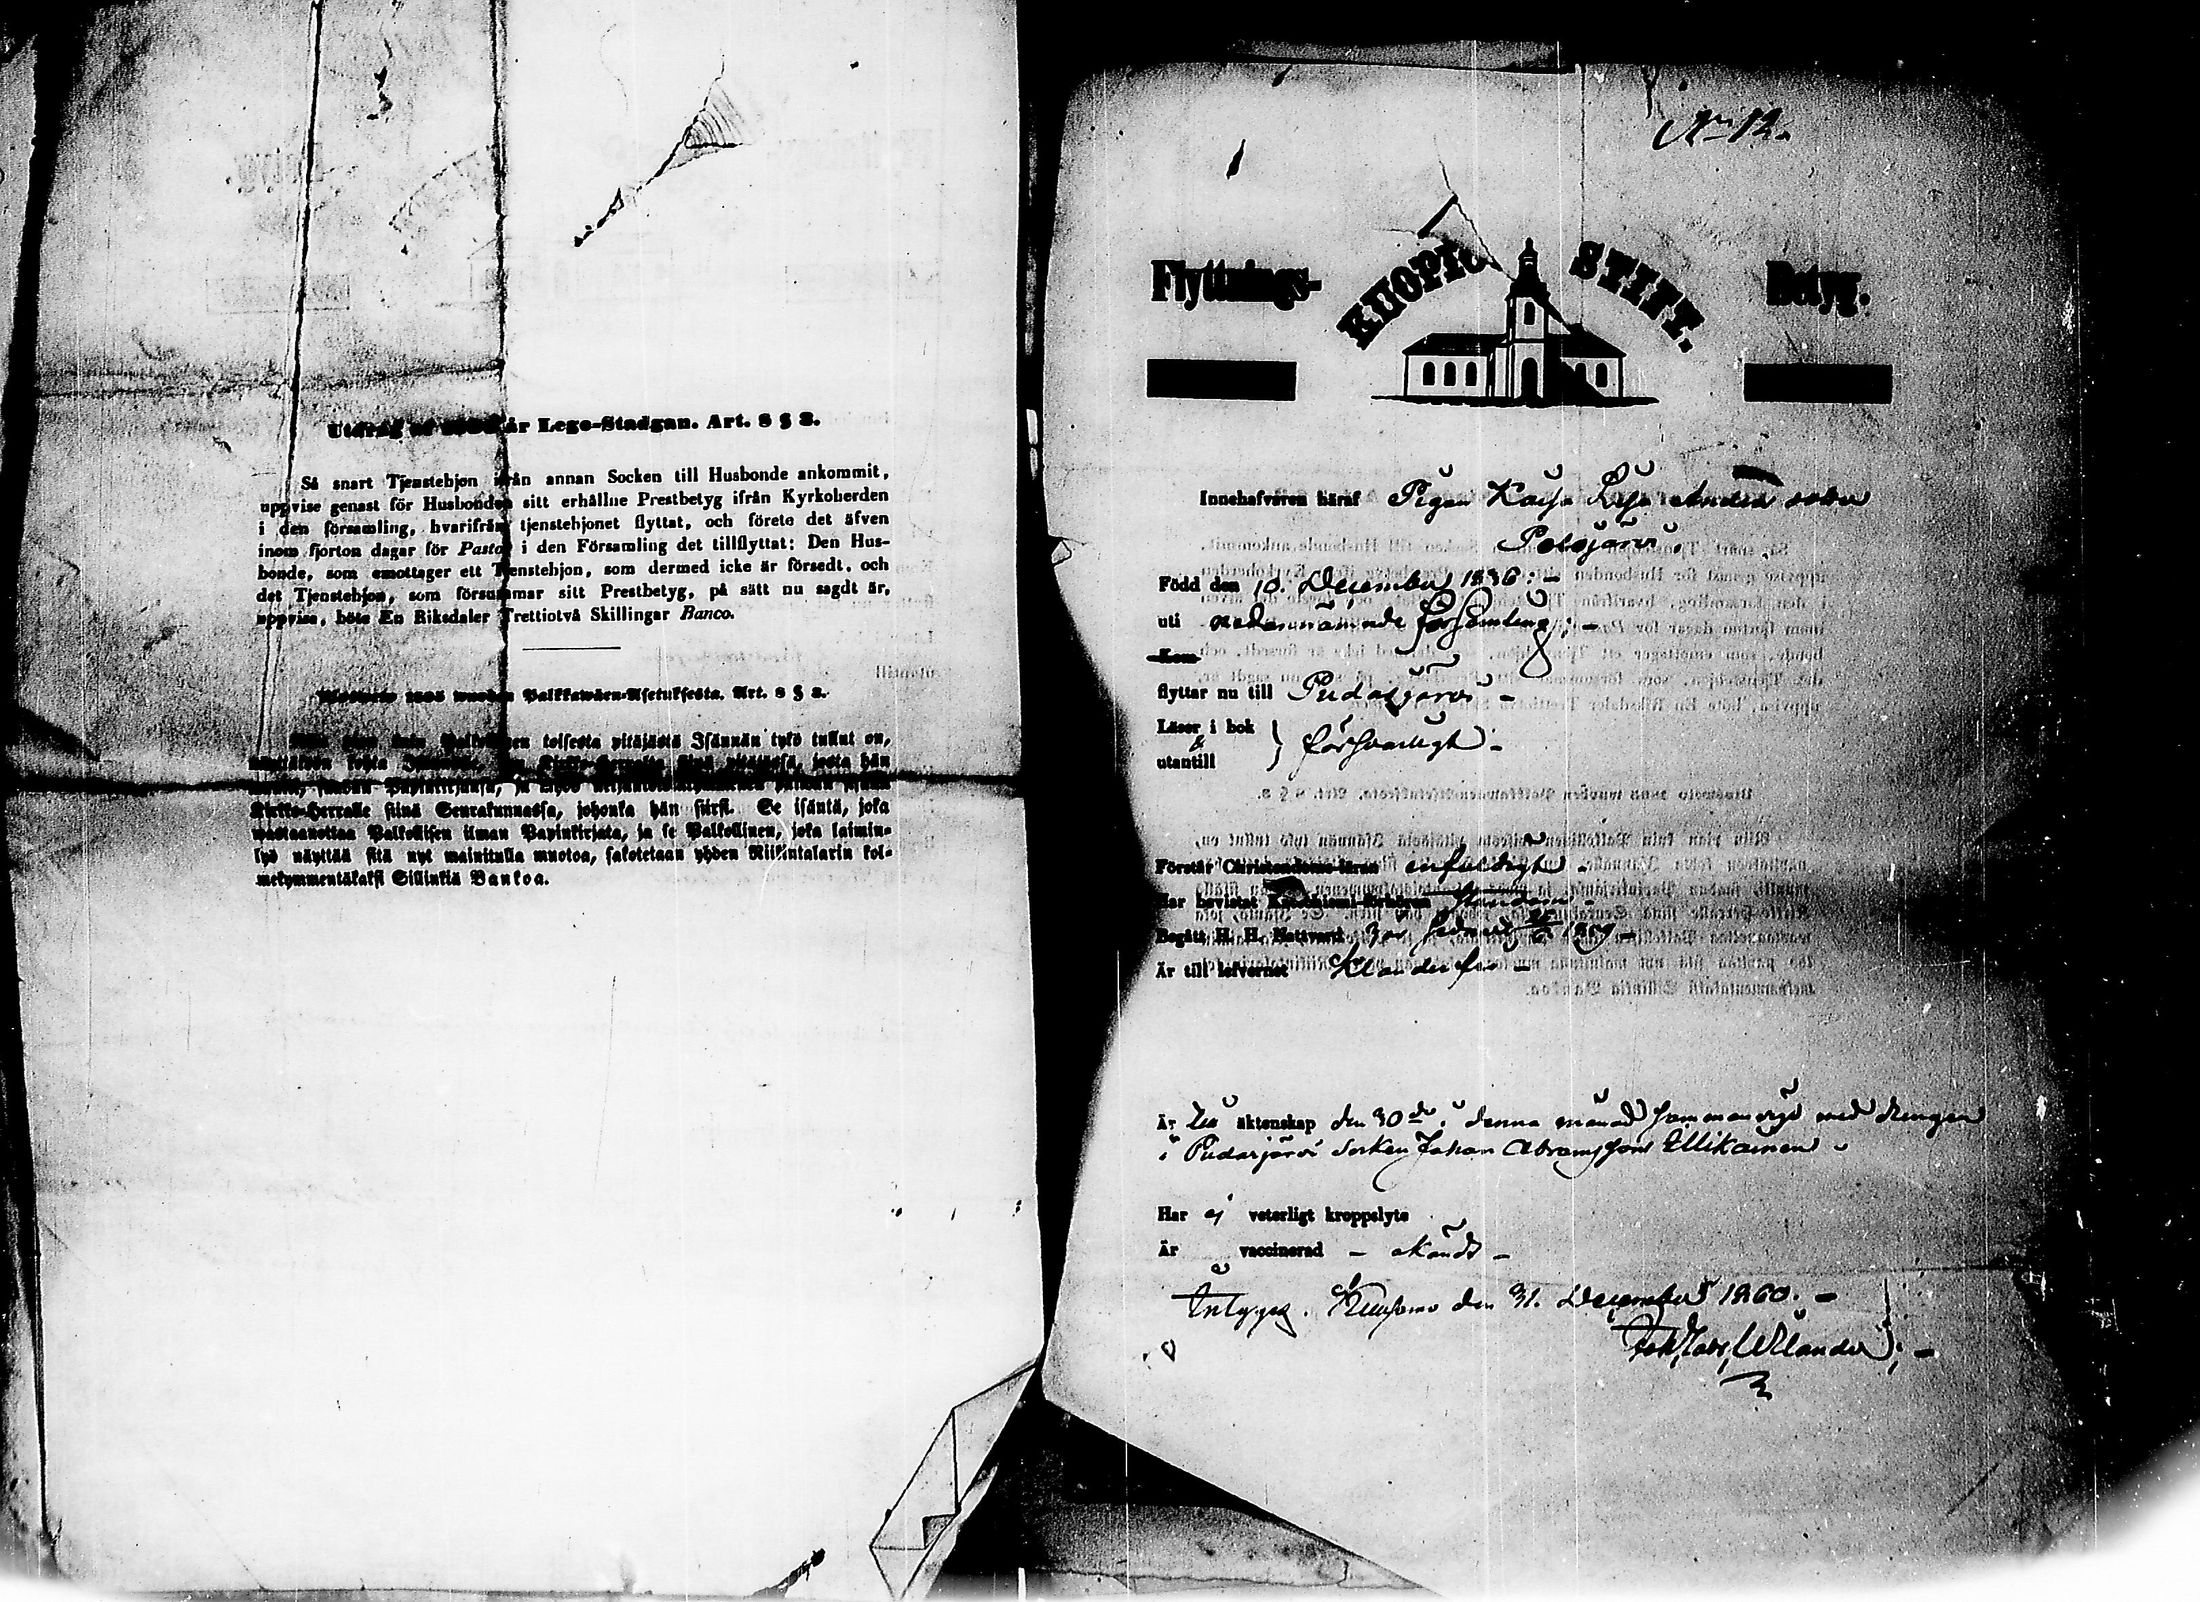 Utdrag af år Lego-Stadgan. Art. 8 § 2.
Så snart Tjenstehjon ifrån annan Socken till Husbonde ankommit,
uppvise genast för Husbonden sitt erhållne Prestbetyg ifrån Kyrkoherden
i den församling, hvarifrån tjenstehjonet flyttat, och förete det äfven
inom fjorton dagar för Pastor i den Församling det tillflyttat: Den Hus-
bonde, som emottager ett Tjenstehjon, som dermed icke är försedt, och
det Tjenstehjon, som försummar sitt Prestbetyg, på sätt nu sagdt är,
uppvise, böte En Riksdaler Trettiotvå Skillingar Banco.
wuoden Palkkawäen-Asetuksesta. Art. 8 § 2.
toisesta pitäjästä Isännän työ tullut on,
pitäjässä, josta hän
Kirkko-Herralle siinä Seurakunnassa, johonka hän siirsi. Se isäntä, joka
wastaanottaa Palkollisen ilman Papinkirjata, ja se Palkollinen, joka laimin-
lyö näyttää sitä nyt mainitulla muotoa, sakotetaan yhden Riikintalarin kol-
mekymmentäkaksi Sillinkiä Bankoa.
Nro 12.
Flyttnings- KUOPIO STIFT. Betyg.
Innehafvaren häraf Pigan Kaisa Lisa Anders dotter
Posojärvi.
Född den 10. December 1836: -
uti nedannämnde församling; -
Kom
flyttar nu till Pudasjärvi -
Läser i bok
&
utantill } försvarligt -
Förstår Christendoms-läran enfaldigt -
Har bevistat Katechismi-förhören
Begått H. H. Nattvard 1859 -
Är till lefvernet Klanderfri -
Är till äktenskap den 30de i denna månad sammanvigd med drengen
i Pudasjärvi Socken Johan Abramsson Illikainen
Har ej veterligt kroppslyte
Är vaccinerad - okändt -
Intygas. Kuusamo den 31. December 1860. -
Wilander; -